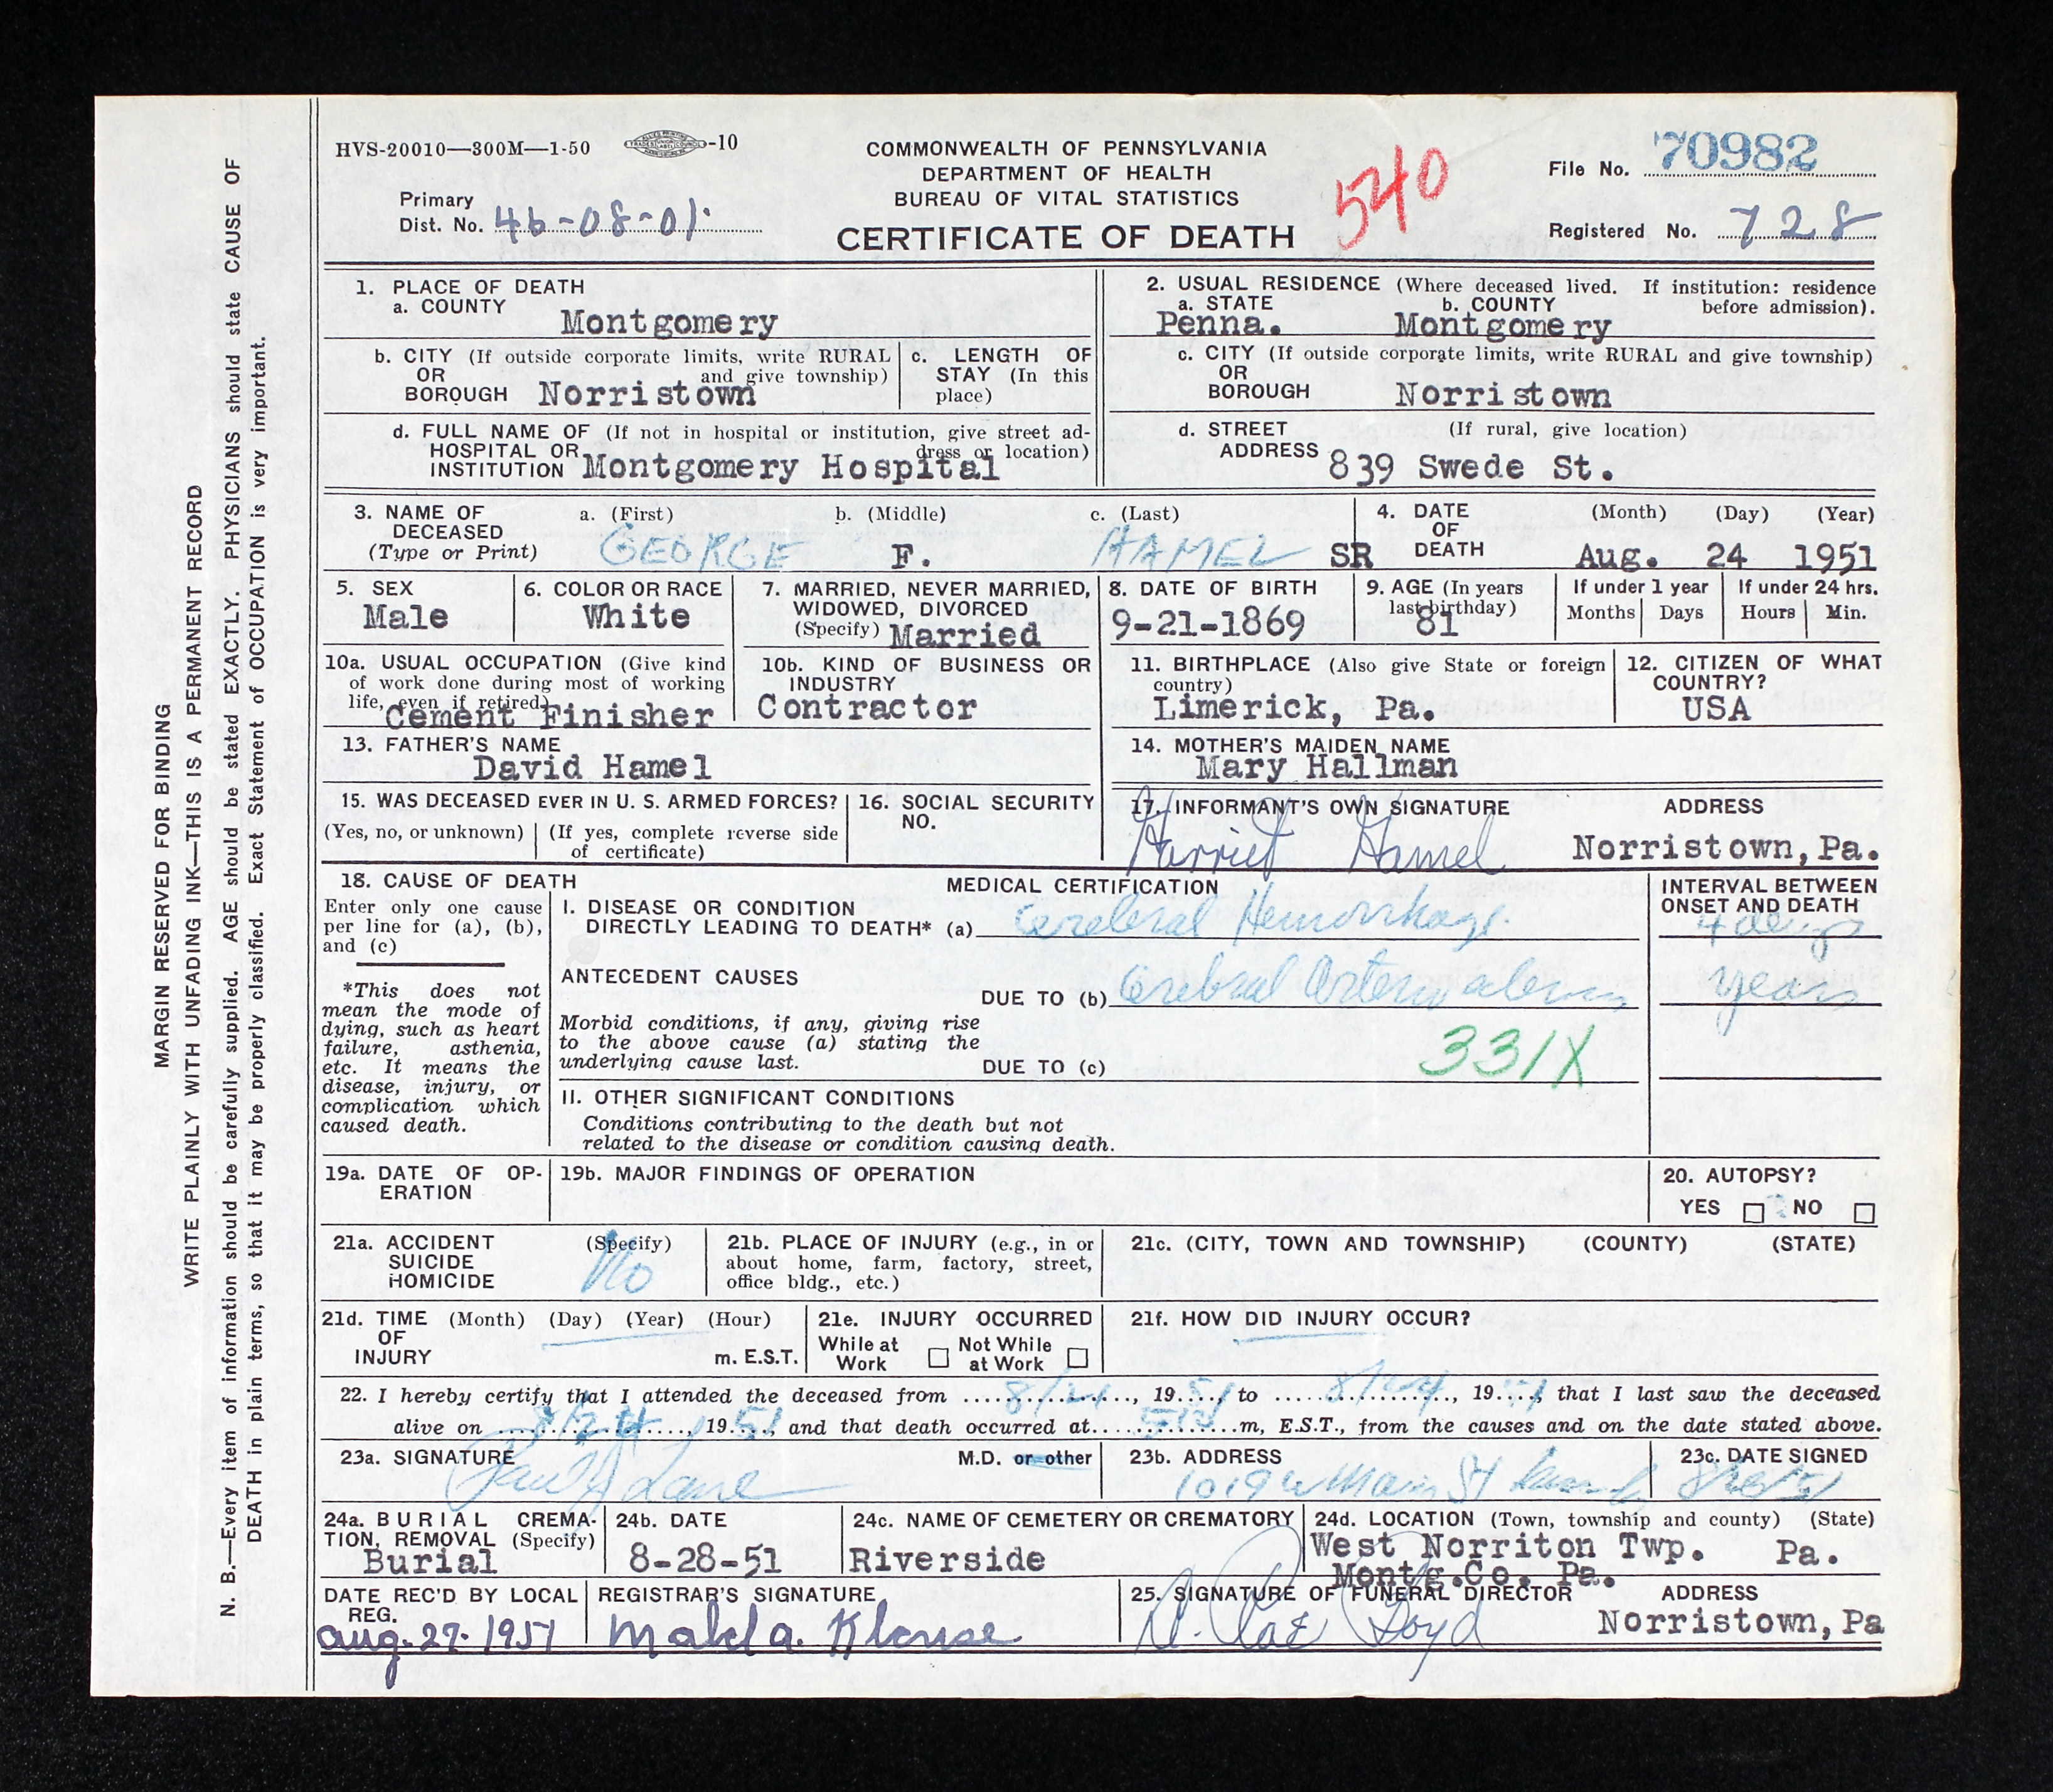 HVS-20010—300M—1-50 -10
COMMONWEALTH OF PENNSYLVANIA
DEPARTMENT OF HEALTH
BUREAU OF VITAL STATISTICS
CERTIFICATE OF DEATH
540
File No. 70982
Primary
Dist. No. 46-08-01
Registered No. 728
1. PLACE OF DEATH
a. COUNTY
Montgomery
b. CITY (If outside corporate limits, write RURAL
OR and give township)
BOROUGH Norristown
c. LENGTH OF
STAY (In this
place)
d. FULL NAME OF (If not in hospital or institution, give street ad-
HOSPITAL OR dress or location)
INSTITUTION Montgomery Hospital
2. USUAL RESIDENCE (Where deceased lived. If institution: residence
a. STATE b. COUNTY before admission).
Penna. Montgomery
c. CITY (If outside corporate limits, write RURAL and give township)
OR
BOROUGH Norristown
d. STREET (If rural, give location)
ADDRESS 839 Swede St.
3. NAME OF a. (First) b. (Middle) c. (Last)
DECEASED
(Type or Print) GEORGE F. HAMEL SR
4. DATE (Month) (Day) (Year)
OF
DEATH Aug. 24 1951
5. SEX
Male
6. COLOR OR RACE
White
7. MARRIED, NEVER MARRIED,
WIDOWED, DIVORCED
(Specify) Married
8. DATE OF BIRTH
9-21-1869
9. AGE (In years
last birthday)
81
If under 1 year
Months Days
If under 24 hrs.
Hours Min.
10a. USUAL OCCUPATION (Give kind
of work done during most of working
life, even if retired)
Cement Finisher
10b. KIND OF BUSINESS OR
INDUSTRY
Contractor
11. BIRTHPLACE (Also give State or foreign
country)
Limerick, Pa.
12. CITIZEN OF WHAT
COUNTRY?
USA
13. FATHER'S NAME
David Hamel
14. MOTHER'S MAIDEN NAME
Mary Hallman
15. WAS DECEASED EVER IN U. S. ARMED FORCES?
(Yes, no, or unknown) (If yes, complete reverse side
of certificate)
16. SOCIAL SECURITY
NO.
17. INFORMANT'S OWN SIGNATURE ADDRESS
Harriet Hamel Norristown, Pa.
18. CAUSE OF DEATH
Enter only one cause
per line for (a), (b),
and (c)
*This does not
mean the mode of
dying, such as heart
failure, asthenia,
etc. It means the
disease, injury, or
complication which
caused death.
MEDICAL CERTIFICATION
I. DISEASE OR CONDITION
DIRECTLY LEADING TO DEATH* (a) Cerebral Hemorrhage
ANTECEDENT CAUSES
DUE TO (b) Cerebral
Morbid conditions, if any, giving rise
to the above cause (a) stating the
underlying cause last. DUE TO (c)
331X
II. OTHER SIGNIFICANT CONDITIONS
Conditions contributing to the death but not
related to the disease or condition causing death.
INTERVAL BETWEEN
ONSET AND DEATH
4 days
years
19a. DATE OF OP-
ERATION
19b. MAJOR FINDINGS OF OPERATION
20. AUTOPSY?
YES NO
21a. ACCIDENT (Specify)
SUICIDE
HOMICIDE
No
21b. PLACE OF INJURY (e.g., in or
about home, farm, factory, street,
office bldg., etc.)
21c. (CITY, TOWN AND TOWNSHIP) (COUNTY) (STATE)
21d. TIME (Month) (Day) (Year) (Hour)
OF
INJURY m. E.S.T.
21e. INJURY OCCURRED
While at Not While
Work at Work
21f. HOW DID INJURY OCCUR?
22. I hereby certify that I attended the deceased from 1951, to 8/24, 1951, that I last saw the deceased
alive on 8/24, 1951, and that death occurred at m, E.S.T., from the causes and on the date stated above.
23a. SIGNATURE M.D. or other
23b. ADDRESS
1019 W Main St
23c. DATE SIGNED
24a. BURIAL CREMA-
TION, REMOVAL (Specify)
Burial
24b. DATE
8-28-51
24c. NAME OF CEMETERY OR CREMATORY
Riverside
24d. LOCATION (Town, township and county) (State)
West Norriton Twp. Pa.
Montg.Co. Pa.
DATE REC'D BY LOCAL
REG.
Aug. 27. 1951
REGISTRAR'S SIGNATURE
Mabel A. Klause
25. SIGNATURE OF FUNERAL DIRECTOR ADDRESS
Boyd Norristown, Pa
MARGIN RESERVED FOR BINDING
WRITE PLAINLY WITH UNFADING INK—THIS IS A PERMANENT RECORD
N. B.—Every item of information should be carefully supplied. AGE should be stated EXACTLY. PHYSICIANS should state CAUSE OF
DEATH in plain terms, so that it may be properly classified. Exact Statement of OCCUPATION is very important.